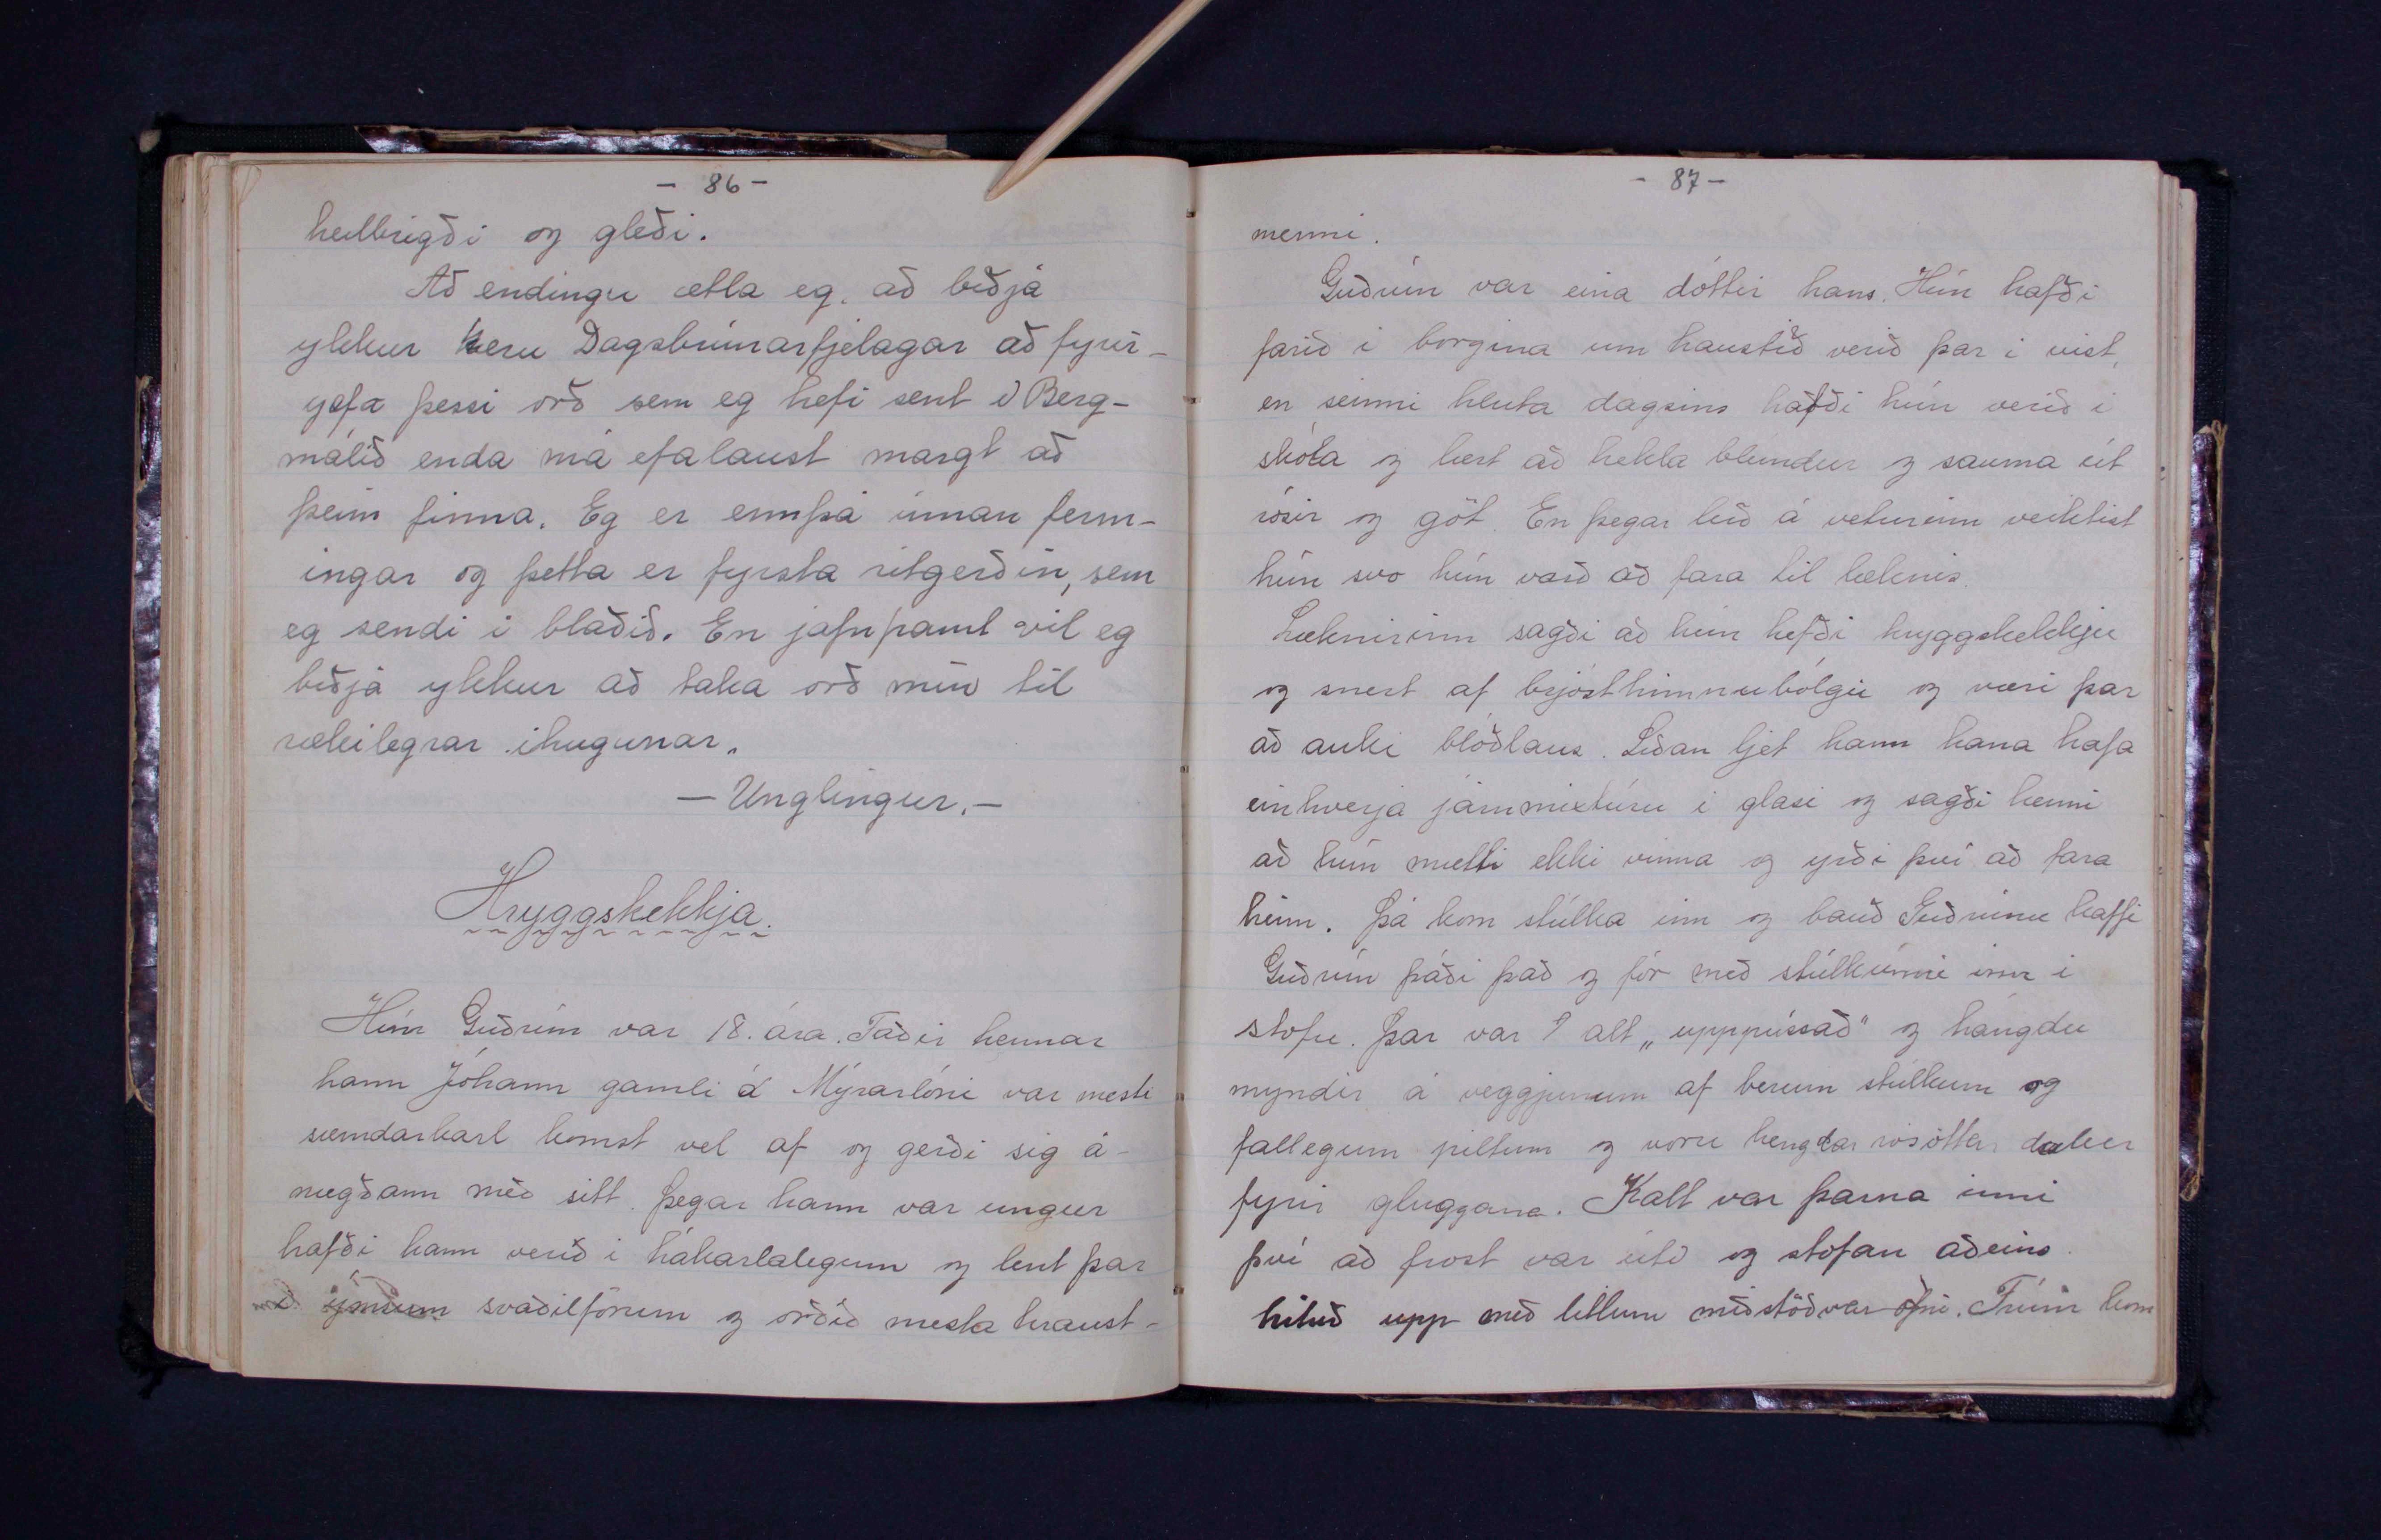 - 86 -
heilbrigði og gleði.
Að endingu ætla eg, að biðja
ykkur kæru Dagsbrúnarfjelagar að fyrir-
gefa þessi orð sem eg hefi sent í Berg-
málið enda má efalaust margt að
þeim finna. Eg er ennþá innan ferm-
ingar og þetta er fyrsta ritgerðin, sem
eg sendi i blaðið. En jafnframt vil eg
biðja ykkur að taka orð mín til
rækilegrar íhugunar.
- Unglingur. -
Hryggskekkja.
Hún Guðrún var 18. ára. Faðir hennar
hann Jóhann gamli á Mýrarlóni var mesti
sæmdarkarl komst vel af og gerði sig á-
nægðann með sitt. Þegar hann var ungur
hafði hann verið i hákarlalegum og lent þar
í ýmsum svaðilförum og orðið mesta hraust-
- 87 -
menni.
Guðrún var eina dóttir hans. Hún hafði
farið i borgina um haustið verið þar i vist,
en seinni hluta dagsins hafði hún verið i
skóla og lært að hekla blúndur og sauma út
rósir og göt. En þegar leið á veturinn veiktist
hún svo hún varð að fara til læknis.
Læknirinn sagði að hún hefði hryggskekkju
og snert af brjósthimnubólgu og væri þar
að auki blóðlaus. Síðan ljet hann hana hafa
einhverja járnmixtúru i glasi og sagði henni
að hún mætti ekki vinna og yrði því að fara
heim. Þá kom stúlka inn og bauð Guðrúnu kaffi
Guðrún þáði það og fór með stúlkunni inn i
stofu. Þar var alt „uppússað" og hángdu
myndir á veggjunum af berum stúlkum og
fallegum piltum og voru hengdar rósóttar dulur
fyrir gluggana. Kalt var þarna inni
því að frost var úti og stofan aðeins
hituð upp með litlum miðstöðvar ofni. Frúin kom